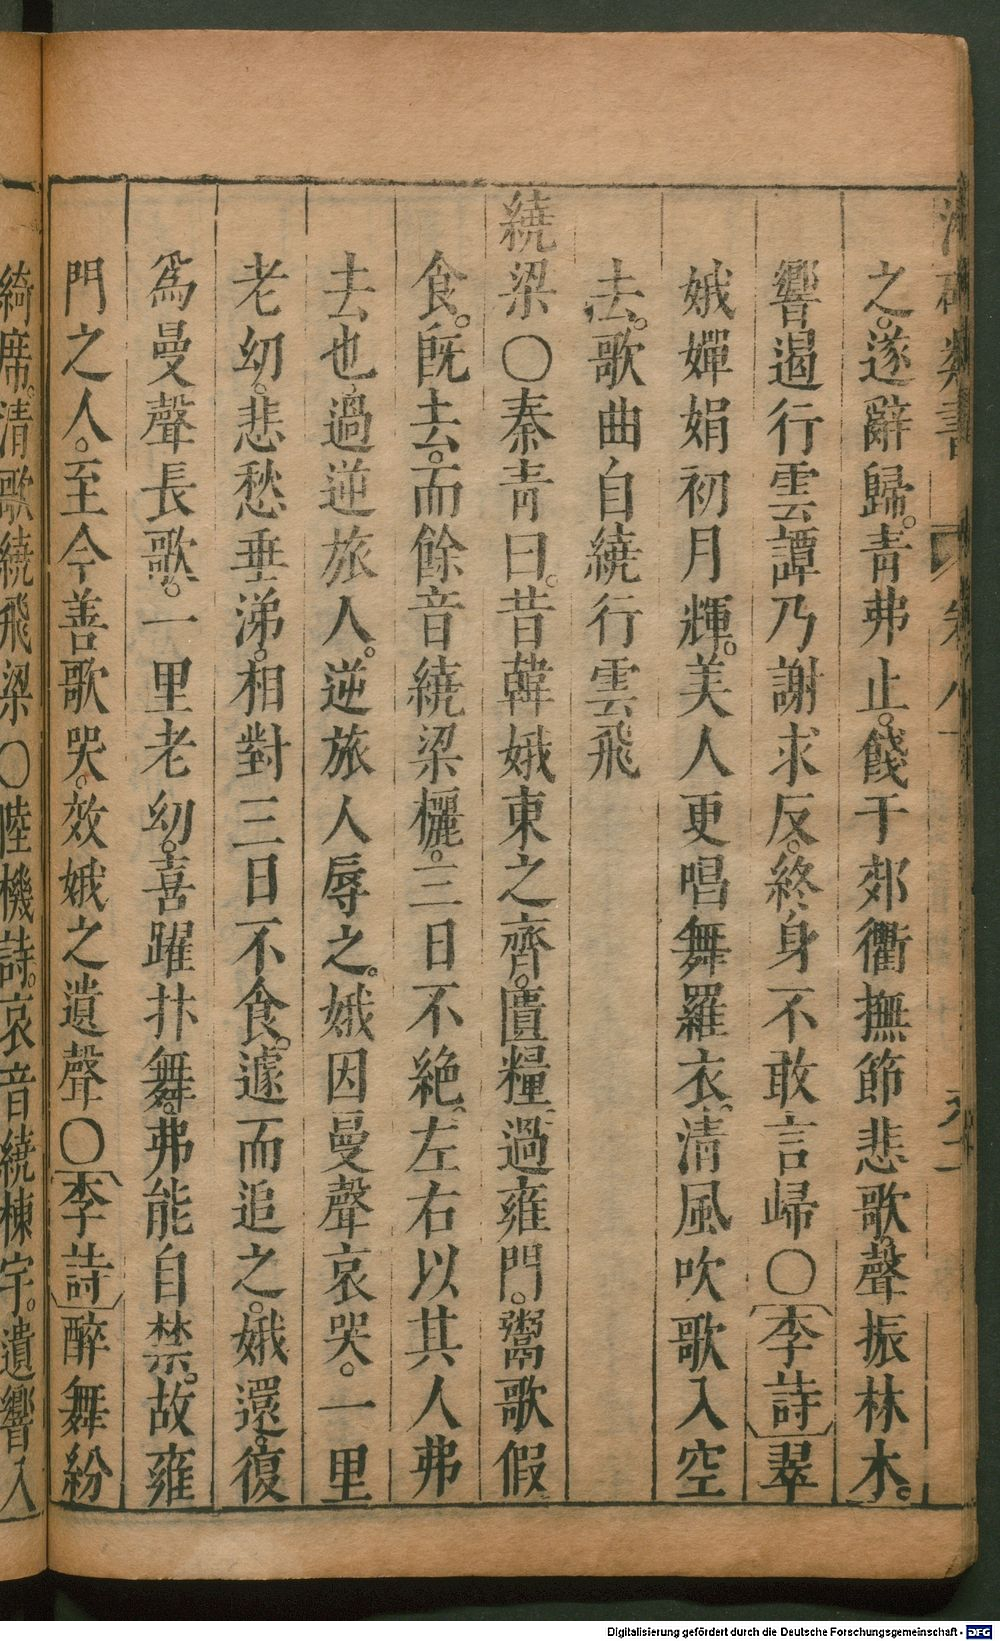 之。遂辭歸。青弗止。餞于郊衢撫節悲歌。聲振林木。
響遏行雲譚乃謝求反。終身不敢言歸〇〔李詩〕翠
娥嬋娟初月輝。美人更唱舞羅衣。清風吹歌入空
去。歌曲自繞行雲飛
繞梁〇秦青曰。昔韓娥東之齊。匱糧過雍門。鬻歌假
食。旣去。而餘音繞梁欐。三日不絶。左右以其人弗
去也過逆旅人。逆旅人辱之。娥因曼聲哀哭。一里
老幼。悲愁垂涕。相對三日不食。遽而追之。娥還。復
爲曼聲長歌。一里老幼。喜躍抃舞。弗能自禁。故雍
門之人。至今善歌哭。效娥之遺聲〇〔李詩〕醉舞紛
綺席。清歌繞飛梁〇陸機詩。哀音繞棟宇。遺響入
Digitalisierung gefördert durch die Deutsche Forschungsgemeinschaft - DFG